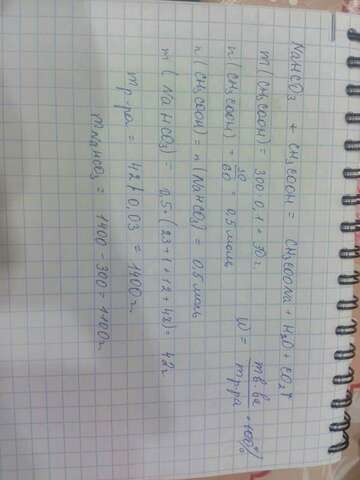 NaHCO3 + CH3COOH = CH3COONa + H2O + CO2↑
m(CH3COOH) = 300·0,1 = 30г.
n(CH3COOH) = 30/60 = 0,5 моль
W = mв.ва/mр-ра ·100%
n(CH3COOH) = n(NaHCO3) = 0,5 моль
m(NaHCO3) = 0,5·(23+1+12+48) = 42г
mр-ра = 42/0,03 = 1400г.
mNaHCO3 = 1400-300=1100г.